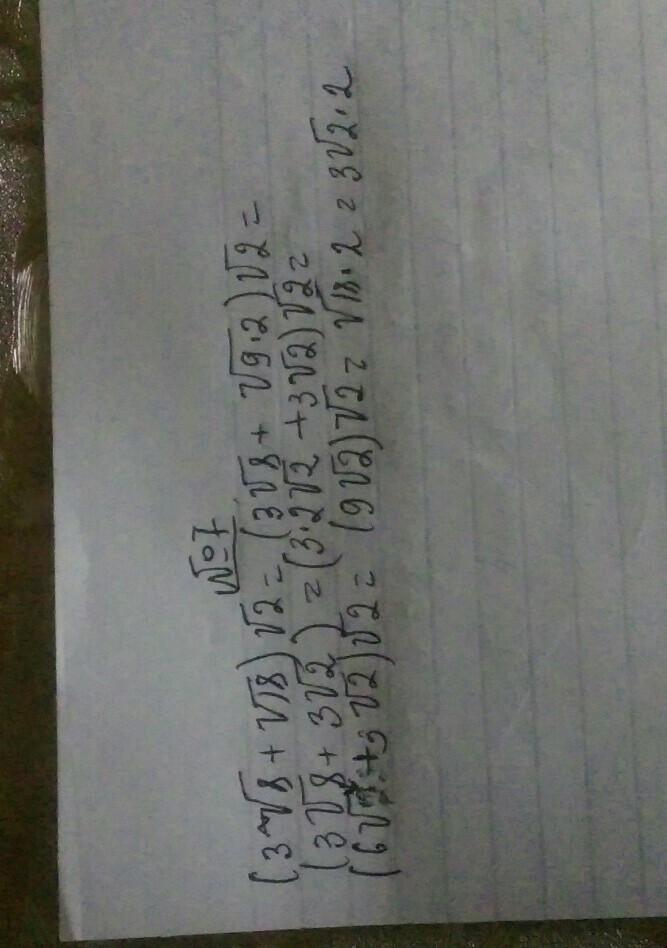 №7
(3√8 + √18)√2 = (3√8 + √9·2)√2 =
(3√8 + 3√2) = (3·2√2 + 3√2)√2 =
(6√2 + 3√2)√2 = (9√2)√2 = √18·2 = 3√2·2